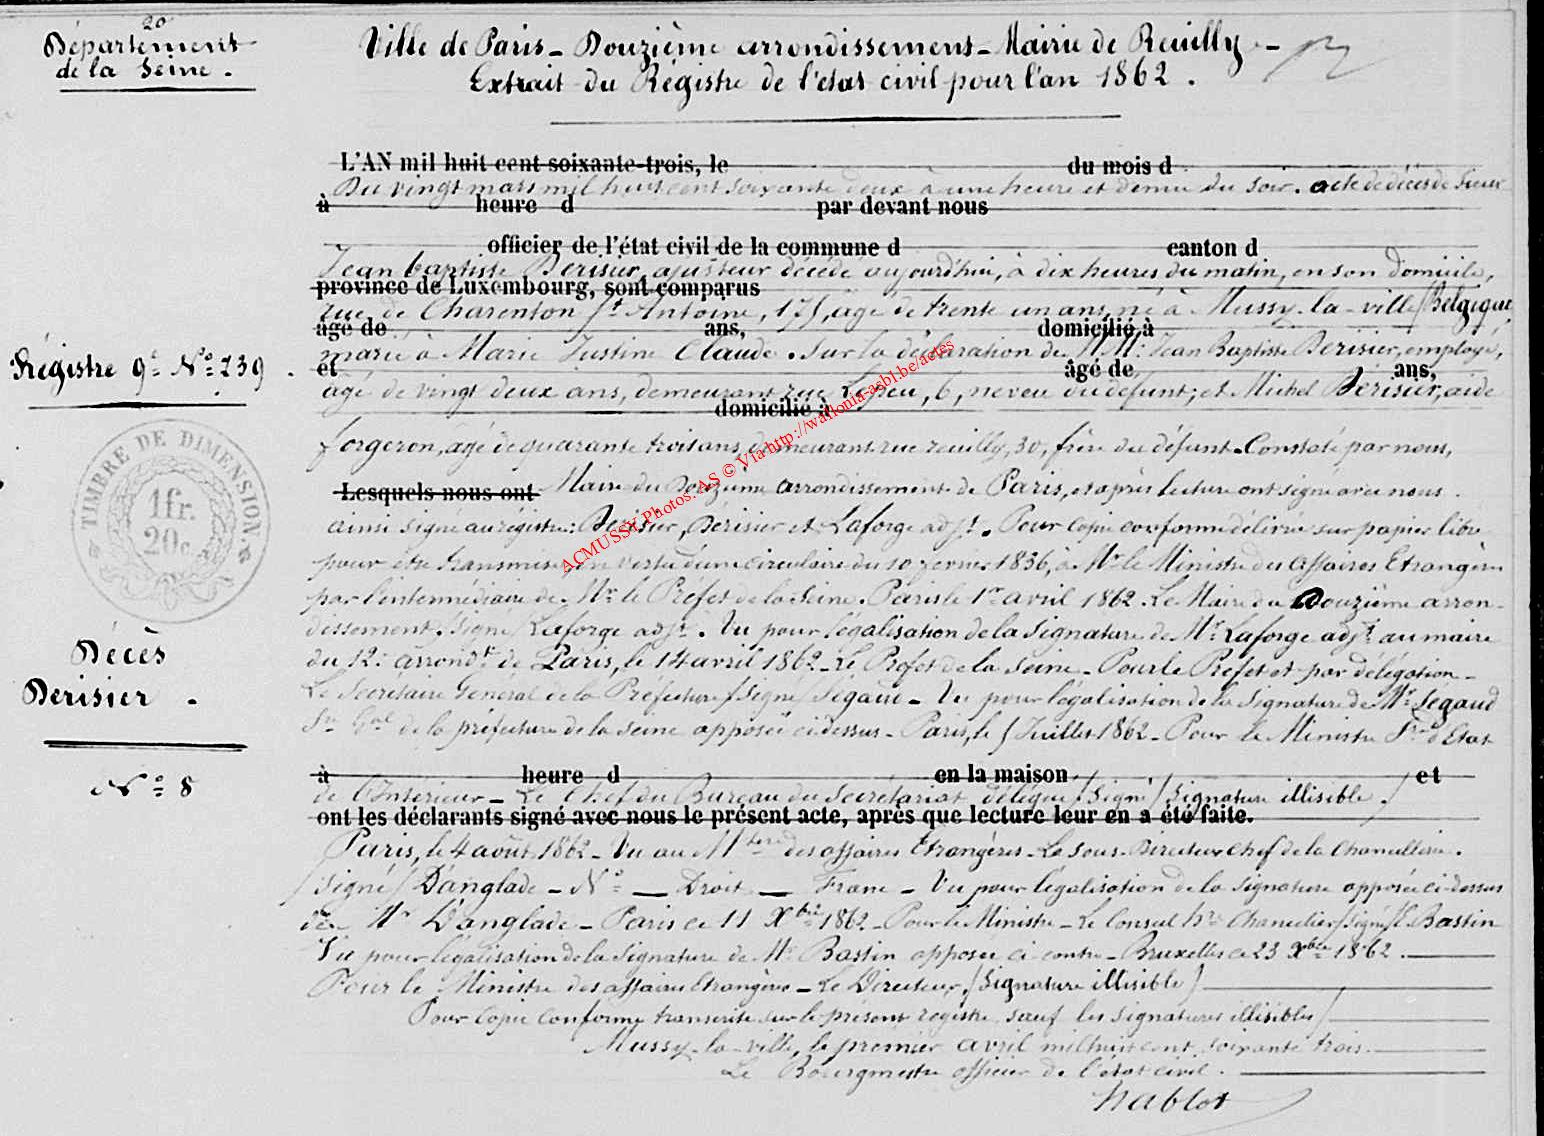 20
Département
de la Seine.
Ville de Paris - Douzième arrondissement - Mairie de Reuilly -
Extrait du Régistre de l'état civil pour l'an 1862.
L'AN mil huit cent soixante-trois, le du mois d
Du vingt mars mil huit cent soixante deux à une heure et demie du soir. acte de décès de Sieur
à heure d par devant nous
officier de l'état civil de la commune d canton d
Jean baptiste Derisier, ajusteur décédé aujourd'hui, à dix heures du matin, en son domicile,
province de Luxembourg, sont comparus
rue de Charenton St Antoine, 175, âgé de trente un ans, né à Mussy-la-ville (Belgique,
âgé de ans, domicilié à
marié à Marie Justine Claude. Sur la déclaration de MM: Jean Baptiste Derisier, employé,
Régistre 9e No 239.
et âgé de ans,
âgé de vingt deux ans, demeurant rue Lepeu, 6, neveu du défunt; et Michel Derisier, aide
domicilié à
forgeron, âgé de quarante trois ans, demeurant rue reuilly, 30, frère du défunt. Constaté par nous,
Lesquels nous ont Maire du Douzième arrondissement de Paris, et après lecture ont signé avec nous.
ainsi signé au régistre: Derisier, Dérisier et Laforge adjt. Pour Copie conforme délivrée sur papier libre
pour être transmise, en vertu d'une circulaire du 10 fevrier 1836, à Mr le Ministre des affaires Etrangères
par l'intermédiaire de Mr le Préfet de la Seine. Paris le 1er avril 1862. Le Maire du Douzième arron-
dissement. Signé/ Laforge adjt. Vu pour légalisation de la Signature de Mr Laforge adjt au maire
du 12e arrondt de Paris, le 14 avril 1862 - Le Préfet de la Seine - Pour le Préfet et par délégation -
Le Secrétaire Général de la Préfecture / Signé/ Ségaud - Vu pour légalisation de la Signature de Mr Segaud
Sre Gal de la préfecture de la Seine apposée ci dessus - Paris, le 5 Juillet 1862 - Pour le Ministre Sre d'Etat
à heure d en la maison et
de l'Intérieur - Le Chef du Bureau du Secrétariat délégué / Signé / Signature illisible /
ont les déclarants signé avec nous le présent acte, après que lecture leur en a été faite.
Paris, le 4 août 1862 - Vu au Mtère des affaires Etrangères - Le Sous-Directeur Chef de la Chancellerie.
/Signé/ D'anglade - No — Droit — Franc - Vu pour légalisation de la Signature apposée ci-dessus
de Mr D'anglade - Paris ce 11 Xbre 1862 - Pour le Ministre - Le Consul Chancelier /signé/ Bastin
Vu pour légalisation de la Signature de Mr Bastin apposée ci-contre - Bruxelles ce 23 Xbre 1862.
Pour le Ministre des affaires Etrangères - Le Directeur, /Signature illisible/
Pour Copie Conforme transcrite sur le présent régistre, sauf les signatures illisibles/
Mussy-la-ville, le premier avril mil huit cent soixante trois.
Le Bourgmestre officier de l'état civil.
Nablot
TIMBRE DE DIMENSION
1 fr.
20 c.
Décès
Derisier.
No 8
ACMUSSY Photos. AS © Via http://wallonia-asbl.be/actes